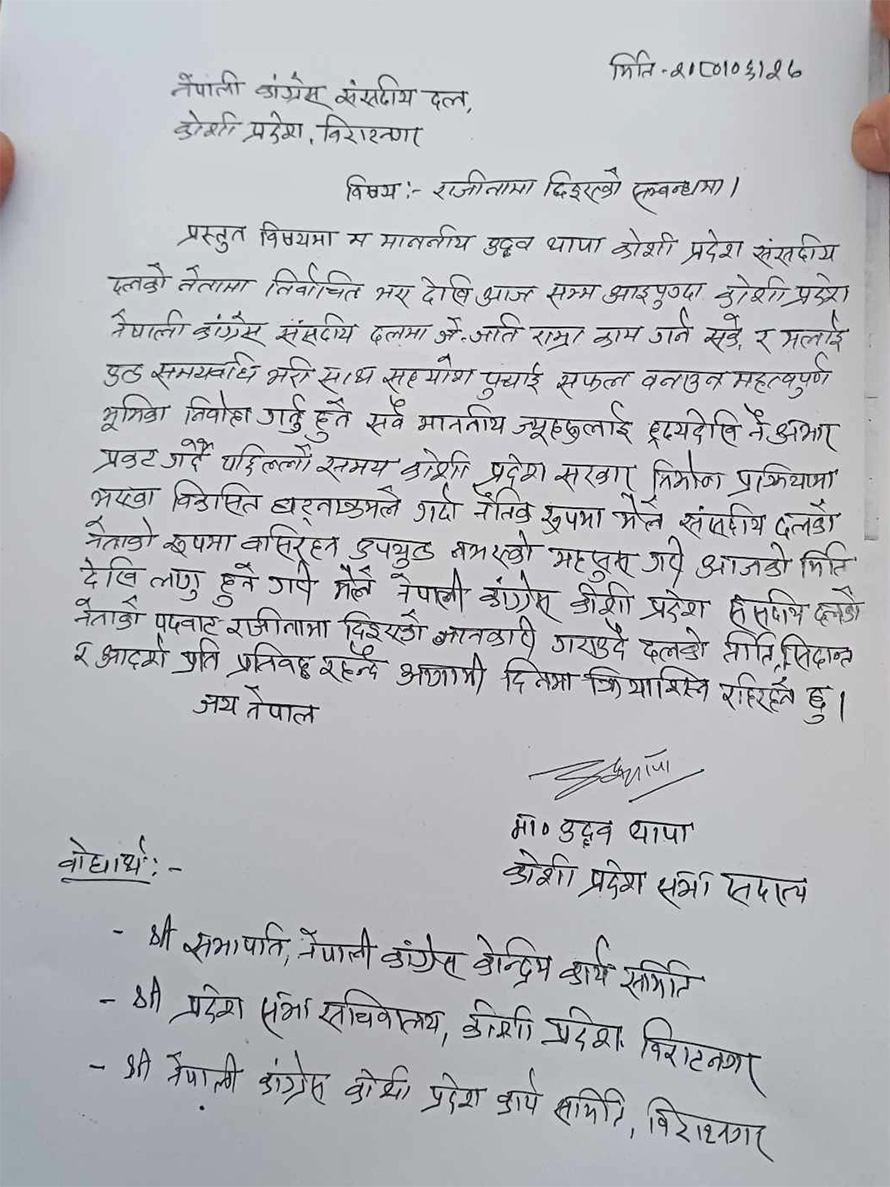 मिति-२०८०।०६।२७
नेपाली कांग्रेस संसदीय दल,
कोशी प्रदेश, विराटनगर
विषय:- राजीनामा दिइएको सम्वन्धमा।
प्रस्तुत विषयमा म माननीय उद्धव थापा कोशी प्रदेश संसदीय
दलको नेतामा निर्वाचित भए देखि आज सम्म आइपुग्दा कोशी प्रदेश
नेपाली कांग्रेस संसदीय दलमा जे-जति राम्रा काम गर्न सकें, र मलाई
उक्त समयावधि भरी साथ सहयोग पुर्‍याई सफल वनाउन महत्वपुर्ण
भूमिका निर्वाह गर्नु हुने सवै माननीय ज्यूहरुलाई ह्रदयदेखि नै अभार
प्रकट गर्दै पछिल्लो समय कोशी प्रदेश सरकार निर्माण प्रक्रियामा
भएका विकासित घटनाक्रमले गर्दा नैतिक रूपमा मैले संसदीय दलको
नेताको रूपमा वसिरहन उपयुक्त नभएको महसुस गरी आजको मिति
देखि लागु हुने गरी मैले नेपाली कांग्रेस कोशी प्रदेश संसदीय दलको
नेताको पदवाट राजीनामा दिइएको जानकारी गराउदै दलको नीति, सिदान्त
र आदर्श प्रति प्रतिवद्ध रहन्दै आगामी दिनमा क्रियाशिल रहिरहने छु।
जय नेपाल
मा० उद्धव थापा
कोशी प्रदेश सभा सदस्य
वोधार्थ:-
- श्री सभापति, नेपाली कांग्रेस केन्द्रिय कार्य समिति
- श्री प्रदेश सभा सचिवालय, कोशी प्रदेश विराटनगर
- श्री नेपाली कांग्रेस कोशी प्रदेश कार्य समिति, विराटनगर